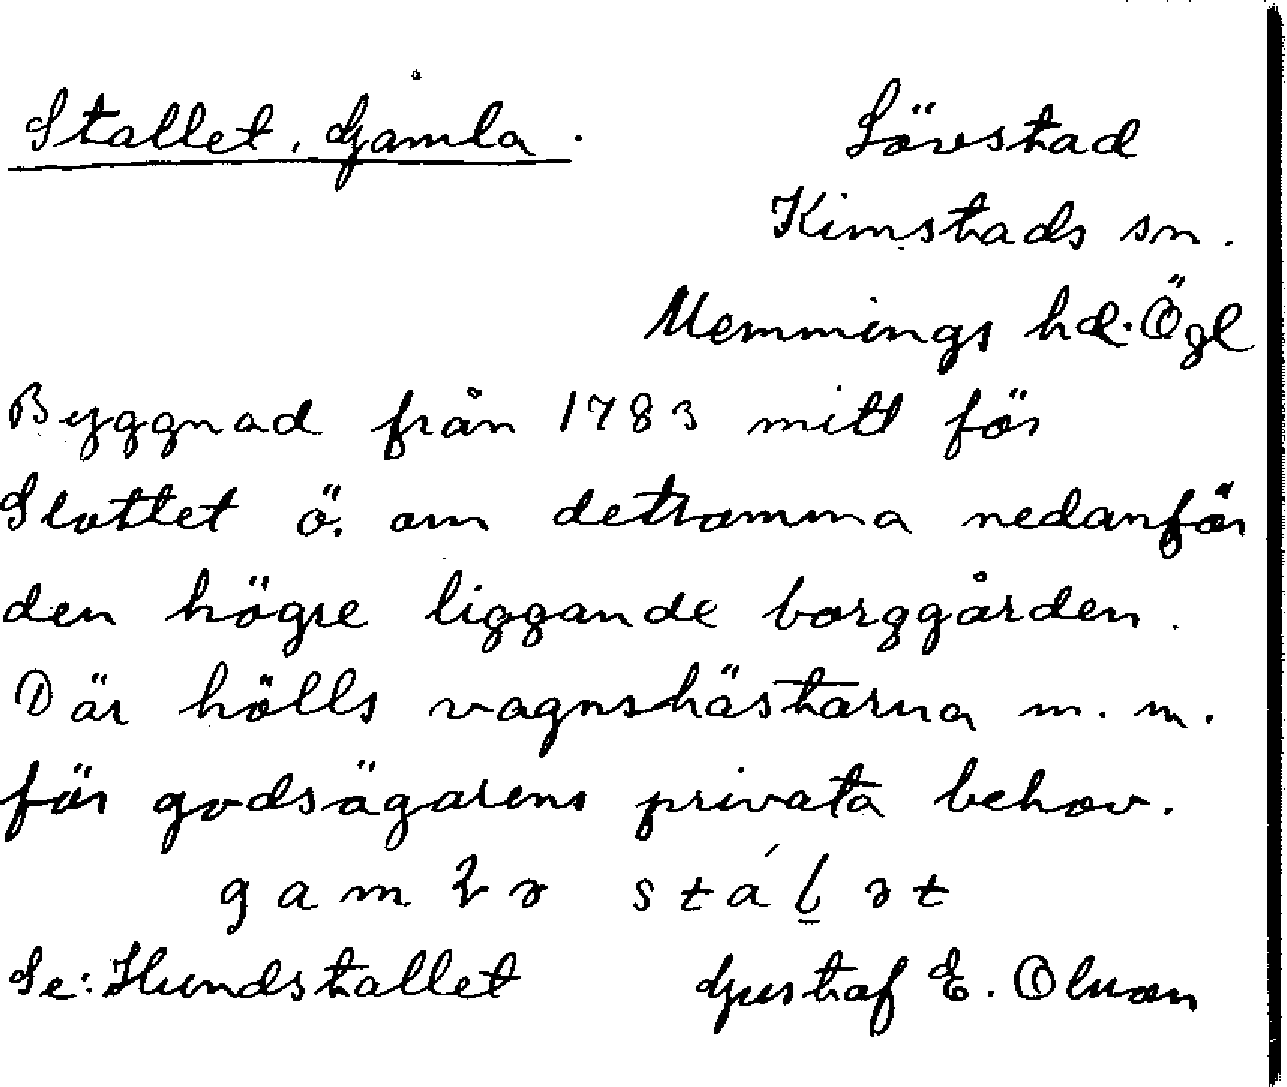 Stallet, Gamla.
Lövstad
Kimstads sn.
Memmings hd. Ögl
Byggnad från 1783 mitt för
Slottet ö. om detsamma nedanför
den högre liggande borggården.
Där hölls vagnshästarna m. m.
för godsägarens privata behov.
stá l̲ ət
Se: Hundstallet
Gustaf E. Olsson